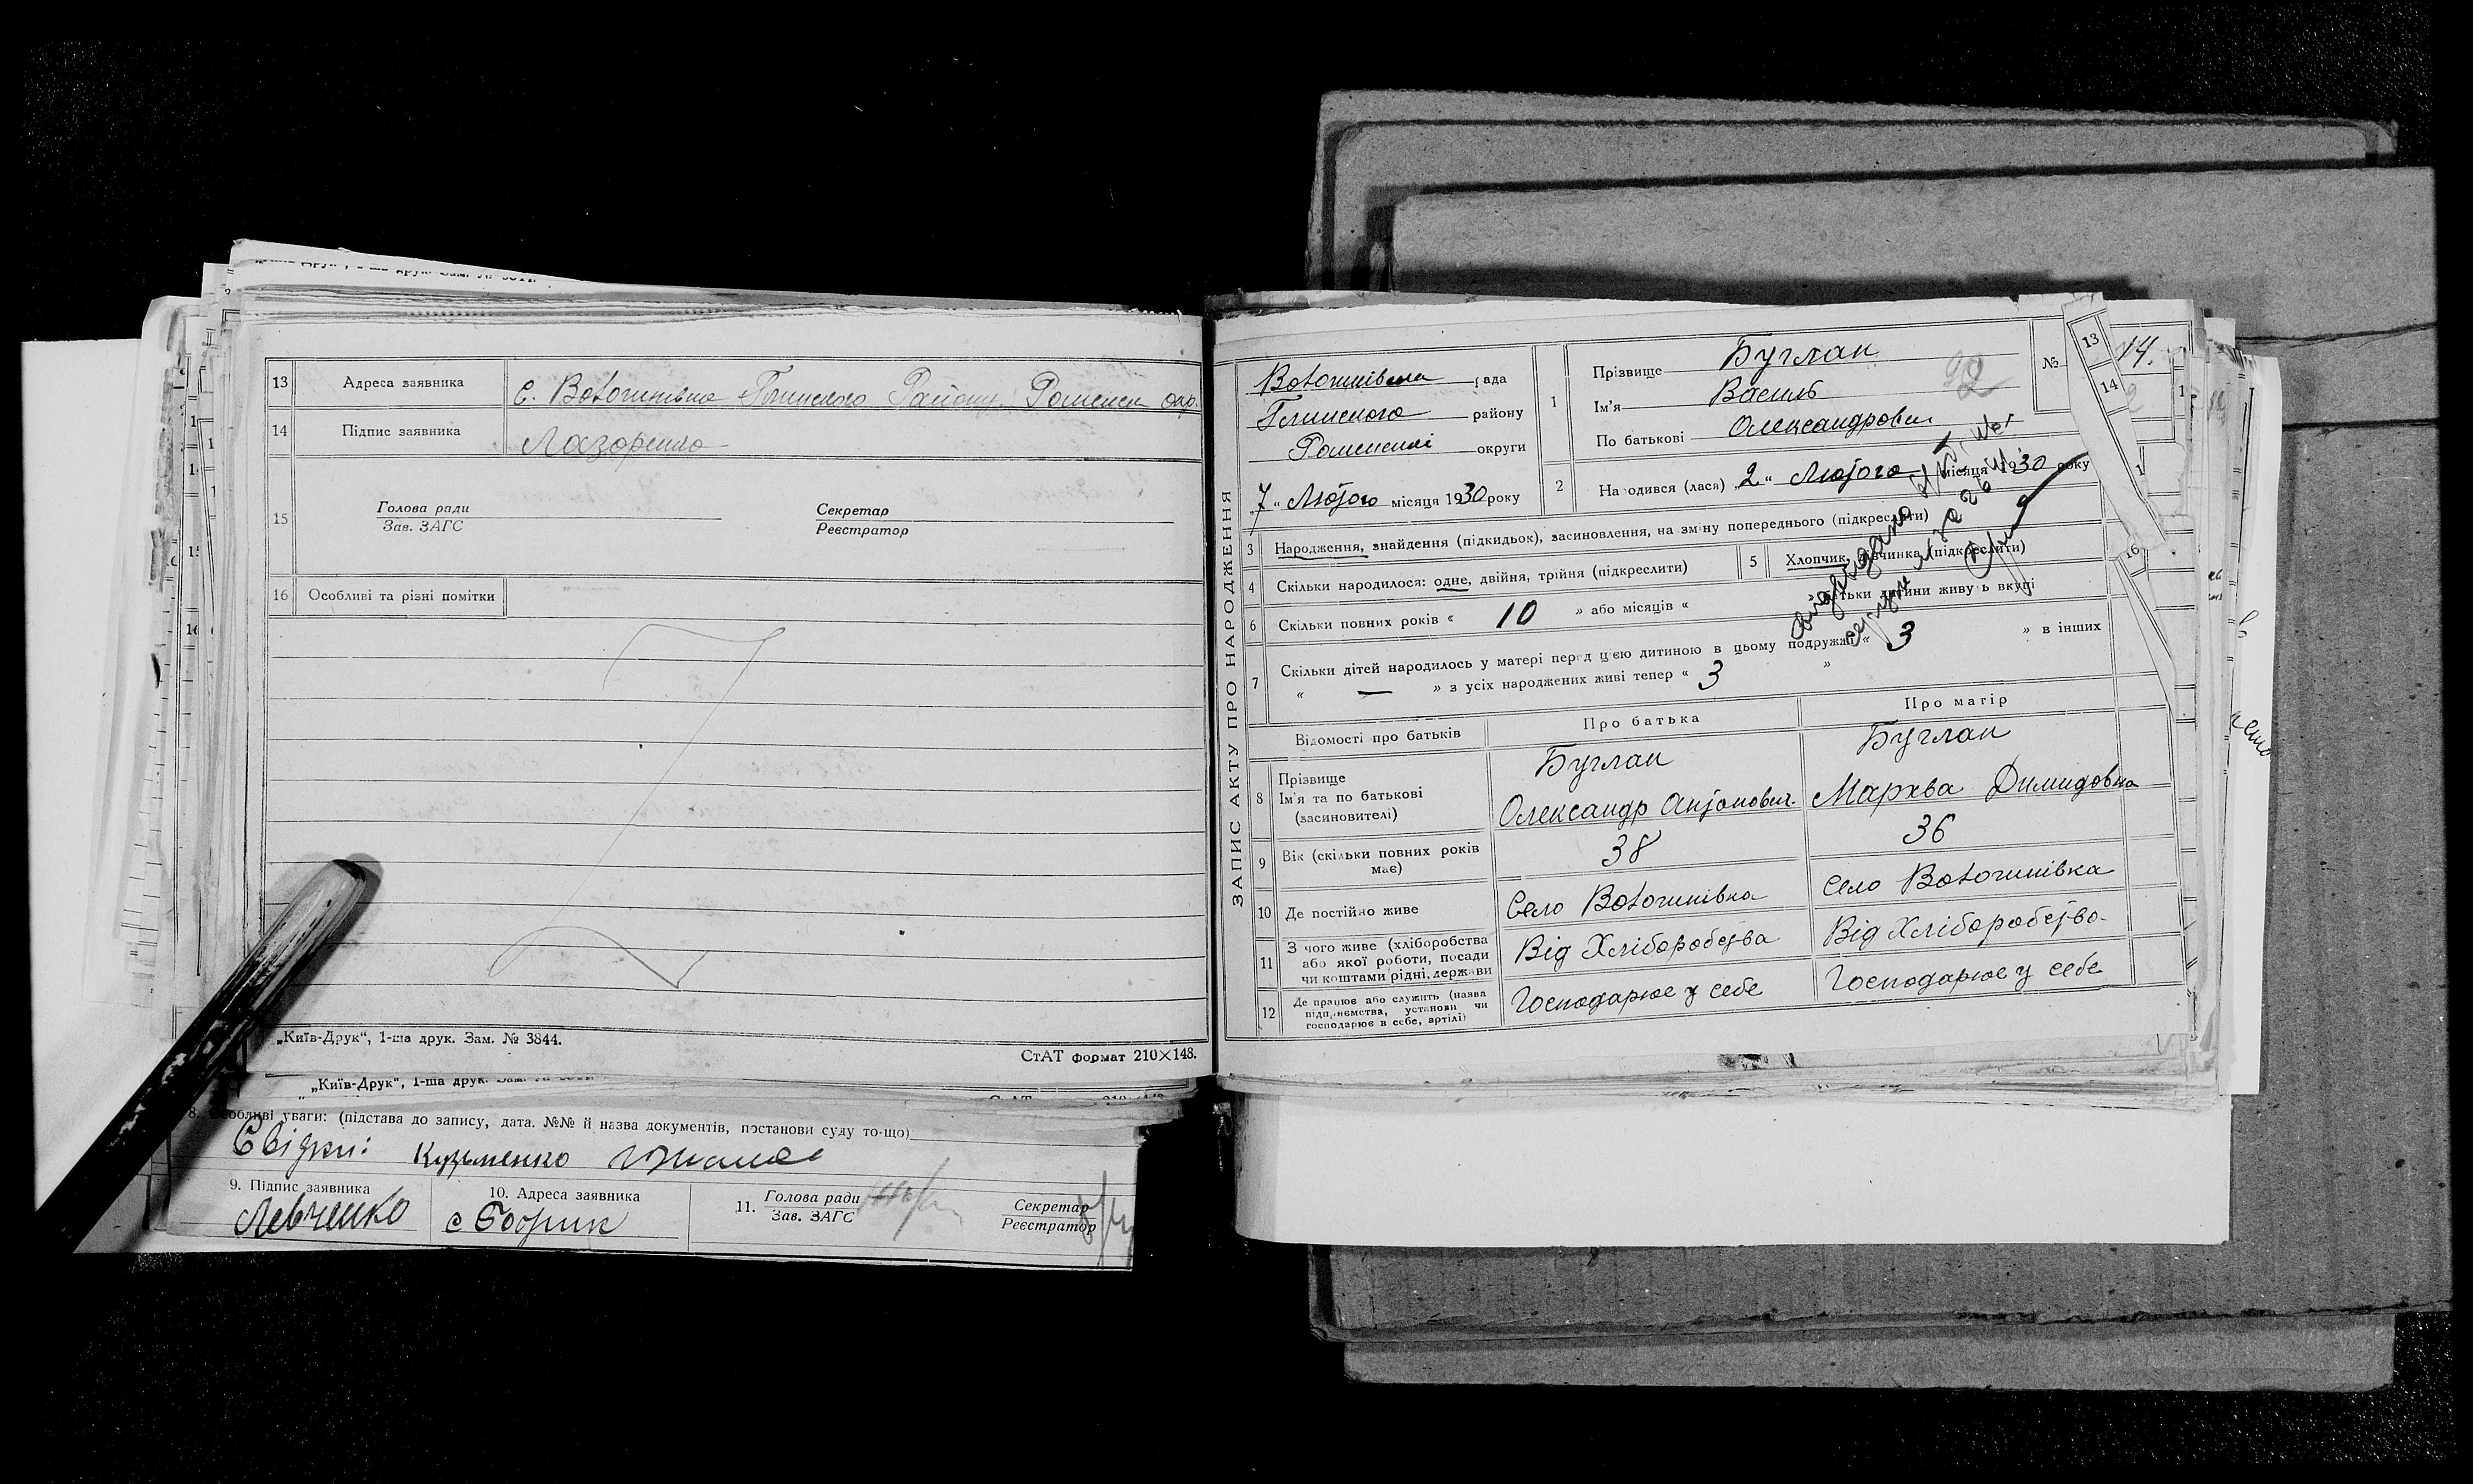 13 Адреса заявника с. Волошнівка Глинського Району Роменськ окр.
14 Підпис заявника Лазоренко
15 Голова ради
Зав. ЗАГС
Секретар
Реєстратор
16 Особливі та різні помітки
„Київ-Друк“, 1-ша друк. Зам. № 3844.
СтАТ формат 210×148.
„Київ-Друк“, 1-ша друк.
8. Особливі уваги: (підстава до запису, дата. №№ й назва документів, постанови суду то-що)
Свідки: Кузьменко
9. Підпис заявника
Левченко
10. Адреса заявника
11. Голова ради
Зав. ЗАГС
Секретар
Реєстратор
ЗАПИС АКТУ ПРО НАРОДЖЕННЯ
Волошнівська рада
Глинського району
Роменської округи
„7“ Лютого місяця 1930 року
1 Прізвище Буглак
Ім'я Василь
По батькові Олександрович
№ 14.
2 Народився (лася) „2“ Лютого місяця 1930 року
3 Народження, знайдення (підкидьок), засиновлення, на зміну попереднього (підкреслити)
4 Скільки народилося: одне, двійня, трійня (підкреслити)
5 Хлопчик, дівчинка (підкреслити)
6 Скільки повних років « 10 » або місяців « » батьки дитини живуть вкупі
7 Скільки дітей народилось у матері перед цією дитиною в цьому подружжі « 3 » в інших
« — » з усіх народжених живі тепер « 3 »
Відомості про батьків
Про батька
Про матір
8 Прізвище
Ім'я та по батькові
(засиновителі)
Буглак
Олександр Антонович.
Буглак
Марква Димидовна
9 Вік (скільки повних років має)
38
36
10 Де постійно живе
Село Волошнівка
село Волошнівка
11 З чого живе (хліборобства
або якої роботи, посади
чи коштами рідні, держави
Від Хліборобства
Від Хліборобство
12 Де працює або служить (назва
підприємства, установи чи
господарює в себе, артілі)
Господарює у себе
Господарює у себе
13
14
16